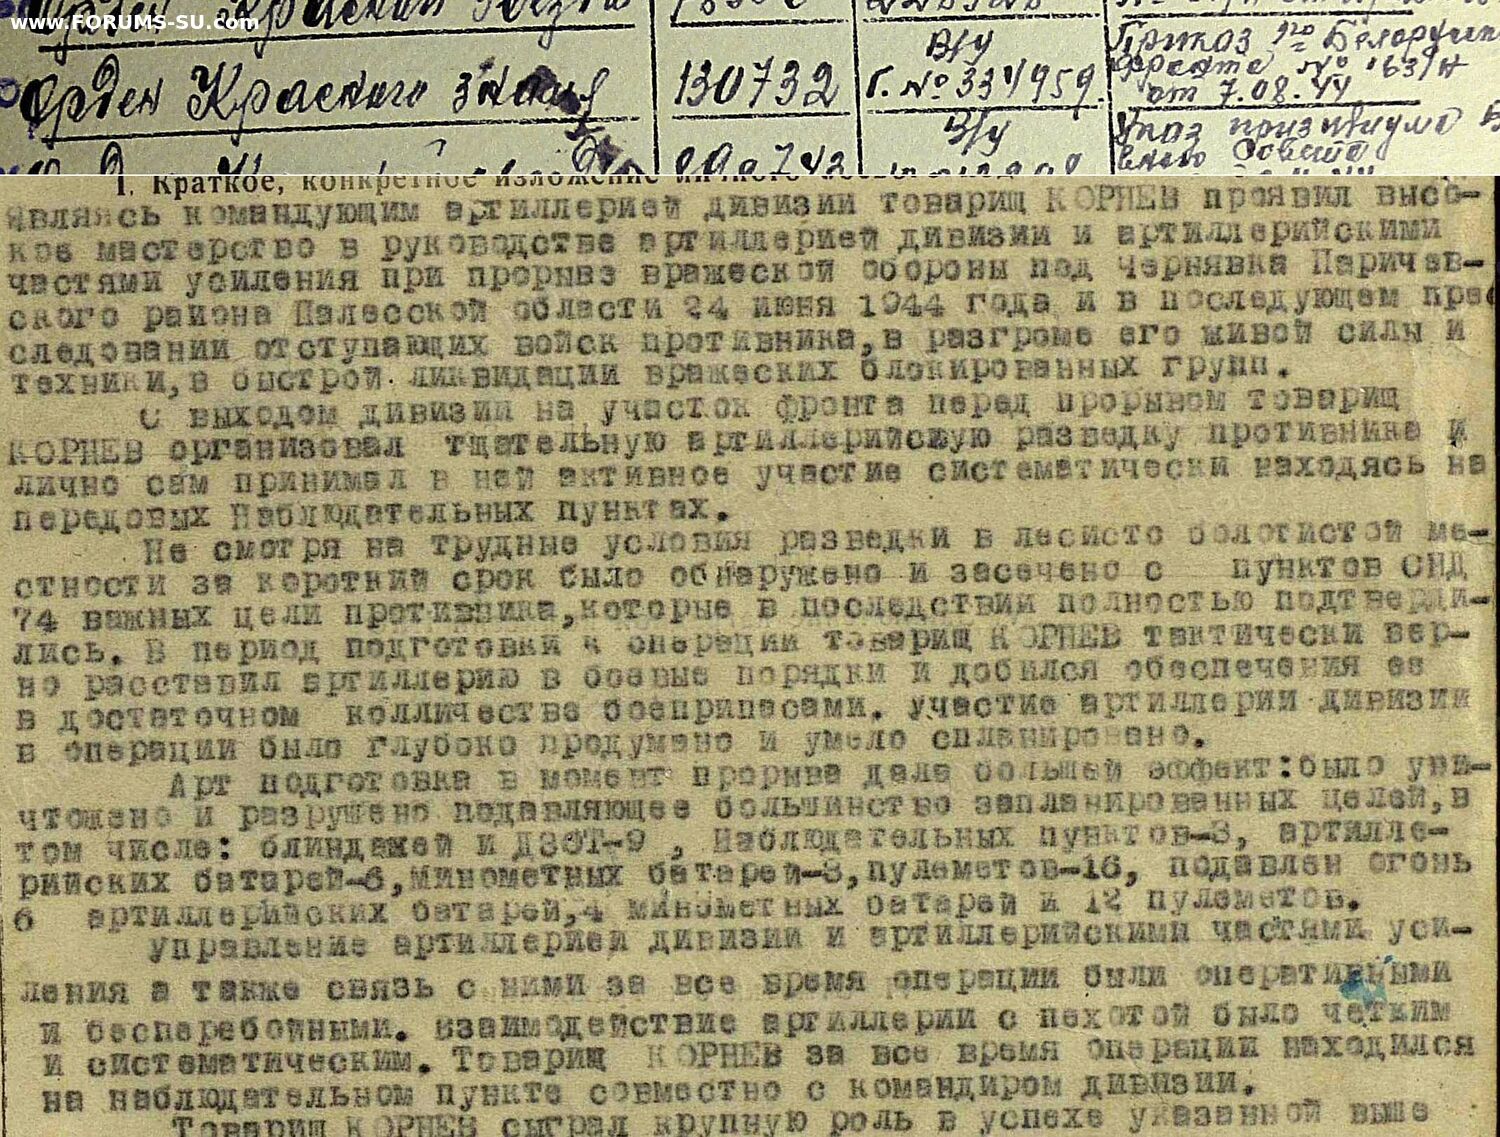 www.FORUMS-SU.com
Орден Красной Звезды
В/у
Орден Красного знамя 130732 Г. № 334959.
Приказ по Белорусск
фронта № 63/н
от 7.08.44
В/у
Указ президиума В
Совета
1. Краткое, конкретное изложение
являясь командующим артиллерией дивизии товарищ КОРНЕВ проявил высо-
кое мастерство в руководстве артиллерией дивизии и артиллерийскими
частями усиления при прорыве вражеской обороны под чернявка Паричев-
ского района Палесской области 24 июня 1944 года и в последующем пре
следовании отступающих войск противника,в разгроме его живой силы и
техники,в быстрой ликвидации вражеских блокированных групп.
С выходом дивизии на участок фронта перед прорывом товарищ
КОРНЕВ организовал тщательную артиллерийскую разведку противника и
лично сам принимал в ней активное участие систематически находясь на
передовых наблюдательных пунктах.
Не смотря на трудные условия разведки в лесисто болотистой ме-
стности за короткий срок было обнаружено и засечено с пунктов СНД
74 важных цели противника,которые в последствии полностью подтверди-
лись. В период подготовки к операции товарищ КОРНЕВ тактически вер-
но расставил артиллерию в боевые порядки и добился обеспечения ее
в достаточном колличестве боеприпасами. участие артиллерии дивизии
в операции было глубоко продумано и умело спланировано.
Арт подготовка в момент прорыва дала большей эффект:было уни-
чтожено и разрушено подавляющее большинство запланированных целей,в
том числе: блиндажей и ДЗОТ-9 , Наблюдательных пунктов-3, артилле-
рийских батарей-6,минометных батарей-3,пулеметов-16, подавлен огонь
6 артиллерийских батарей,4 минометных батарей и 12 пулеметов.
Управление артиллерией дивизии и артиллерийскими частями уси-
ления а также связь с ними за все время операции были оперативными
и бесперебойными. взаимодействие артиллерии с пехотой было четким
и систематическим. Товарищ КОРНЕВ за все время операции находился
на наблюдательном пункте совместно с командиром дивизии.
Товарищ КОРНЕВ сыграл крупную роль в успехе указанной выше